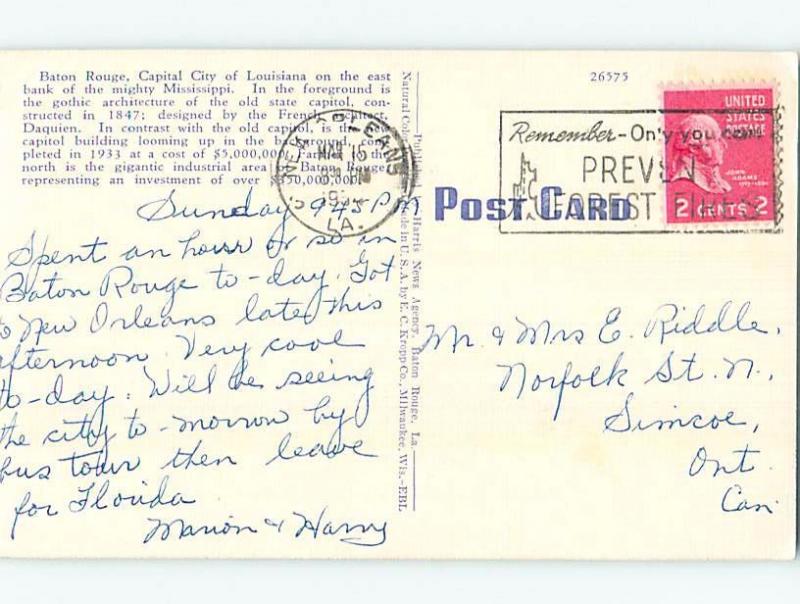 Baton Rouge, Capital City of Louisiana on the east
bank of the mighty Mississippi. In the foreground is
the gothic architecture of the old state capitol, con-
structed in 1847; designed by the French architect,
Daquien. In contrast with the old capitol, is the new
capitol building looming up in the background, com-
pleted in 1933 at a cost of $5,000,000. Farther to the
north is the gigantic industrial area of Baton Rouge
representing an investment of over $50,000,000.
Sunday 945 PM
Spent an hour or so in
Baton Rouge to-day. Got
to New Orleans late this
afternoon. Very cool
to-day. Will be seeing
the city to-morrow by
bus tour then leave
for Florida
Marion & Harry
Harris News Agency, Baton Rouge, La.
Made in U.S.A. by E. C. Kropp Co., Milwaukee, Wis.—EBL
NEW ORLEANS
MAR 15
LA.
26575
Remember - Only you can
PREVENT
FOREST FIRES
UNITED
STATES
POSTAGE
JOHN
ADAMS
2 CENTS 2
POST CARD
Mr. & Mrs E. Riddle,
Norfolk St. N.,
Simcoe,
Ont.
Can.